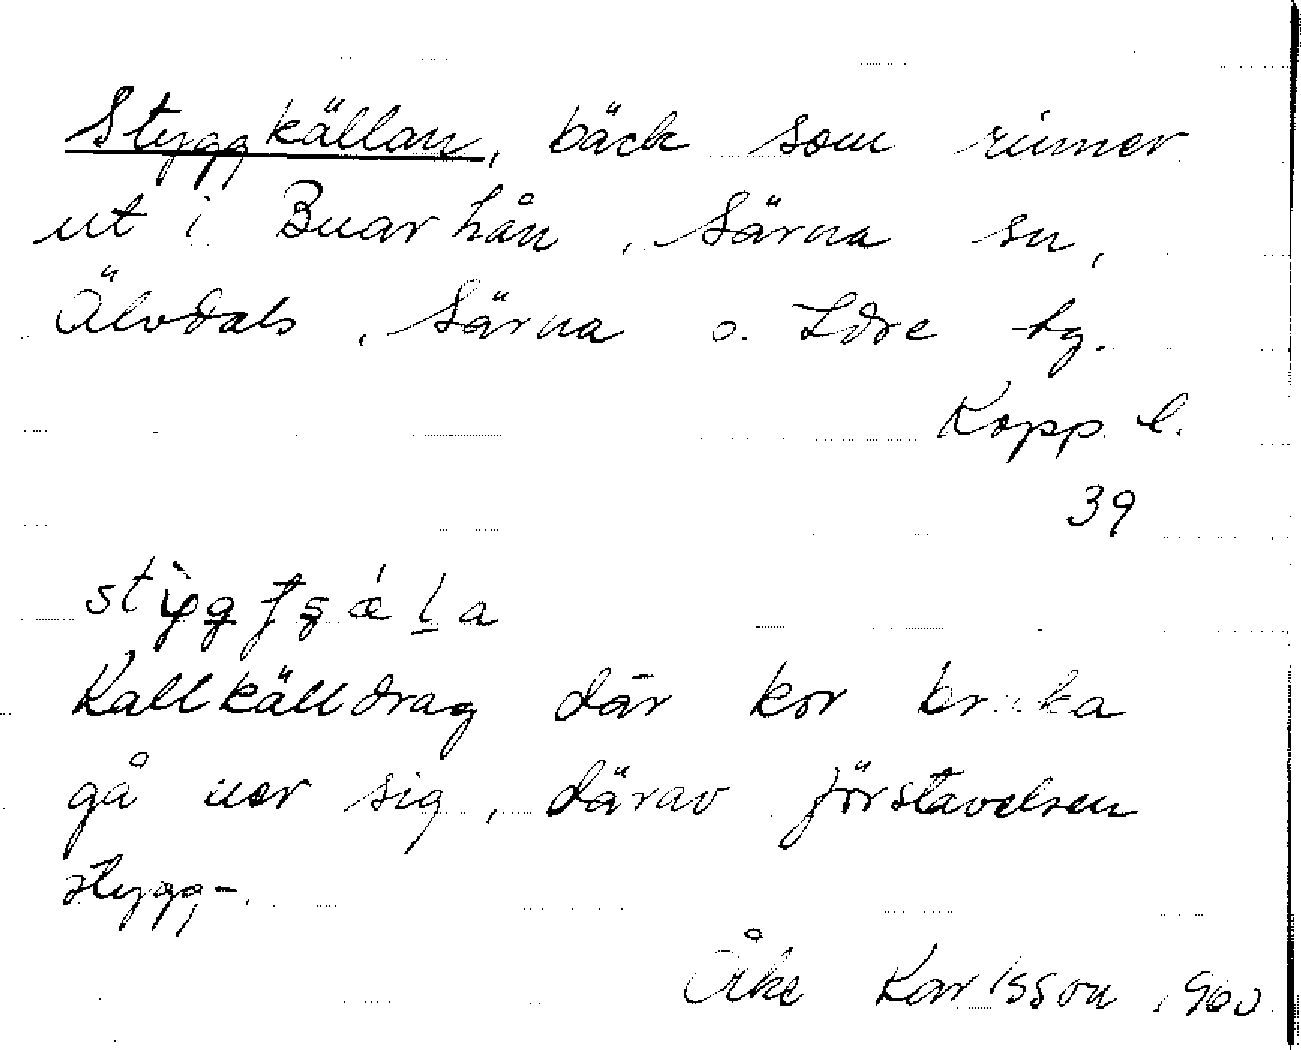 Styggkällan, bäck som rinner
ut i Buarhån, Särna sn,
Älvdals, Särna o. Idre tg.
Kopp. l.
39
Kallkälldrag där kor bruka
gå ner sig, därav förstavelsen
stygg-.
Åke Karlsson 1960